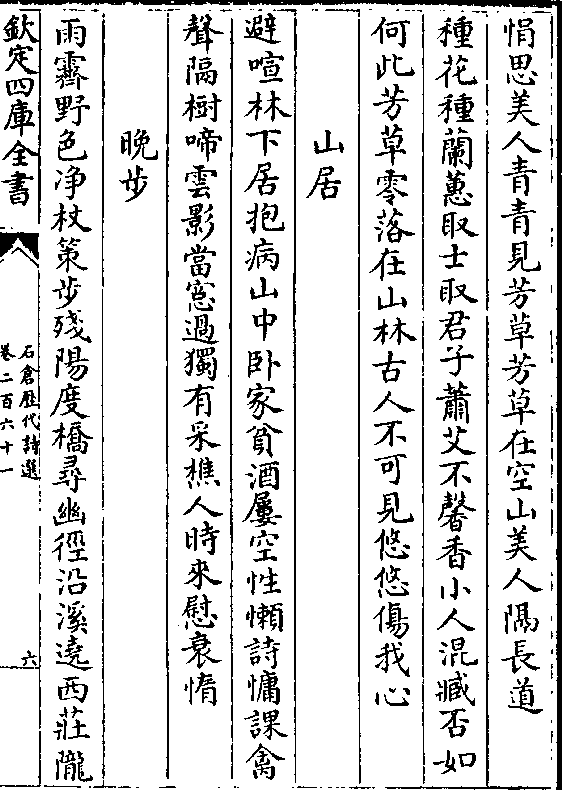 悁思美人青青見芳草芳草在空山美人隅長道
種花種蘭蕙取士取君子蕭艾不馨香小人混臧否如
何此芳草零落在山林古人不可見悠悠傷我心
山居
避喧林下居抱病山中卧家貧酒屢空性懶詩慵課禽
聲隔樹啼雲影當窓過獨有采樵人時來慰衰惰
晚步
雨霽野色净杖策步殘陽度橋尋幽徑沿溪遶西莊隴
欽定四庫全書
石倉歴代詩選
卷二百六十一
六